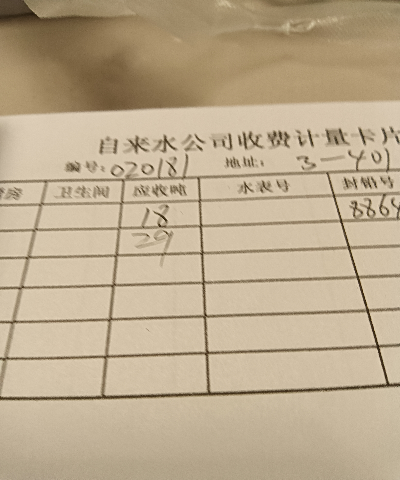 自来水公司收费计量卡片
编号:020181 地址: 3-401
房 卫生间 应收吨 水表号 封铅号
18 8864
29